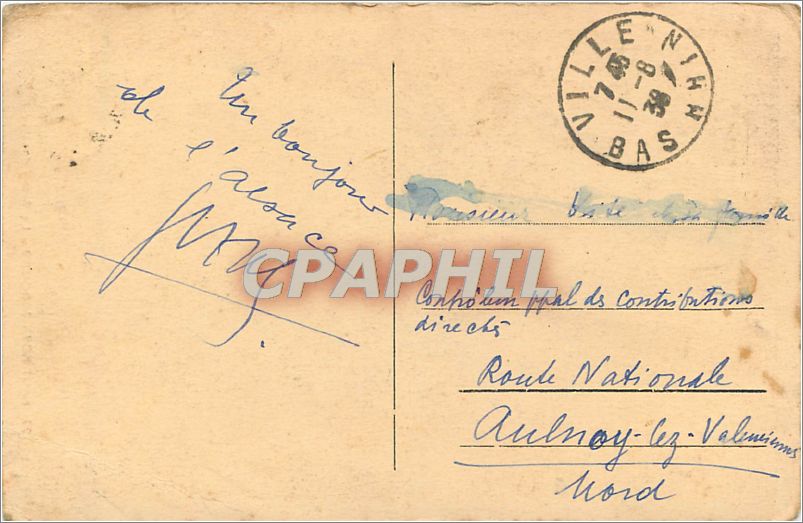 Un bonjour
de l'alsace
VILLE BAS RHIN
7 45
11 - 8
38
CPAPHIL
Monsieur
Contrôleur ppal des contributions
directes
Route Nationale
Aulnoy-lez-Valenciennes
Nord